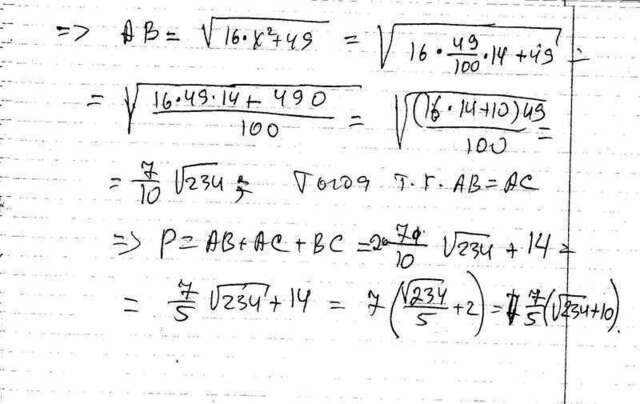 => AB = √(16·x²+49) = √(16·49/100·14+49) =
= √((16·49·14+490)/100) = √(((16·14+10)49)/100) =
= 7/10 √234; Тогда т.к. AB=AC
=> P = AB+AC+BC = 2·7/10 √234 + 14 =
= 7/5 √234 + 14 = 7(√234/5 + 2) = 7/5(√234+10).